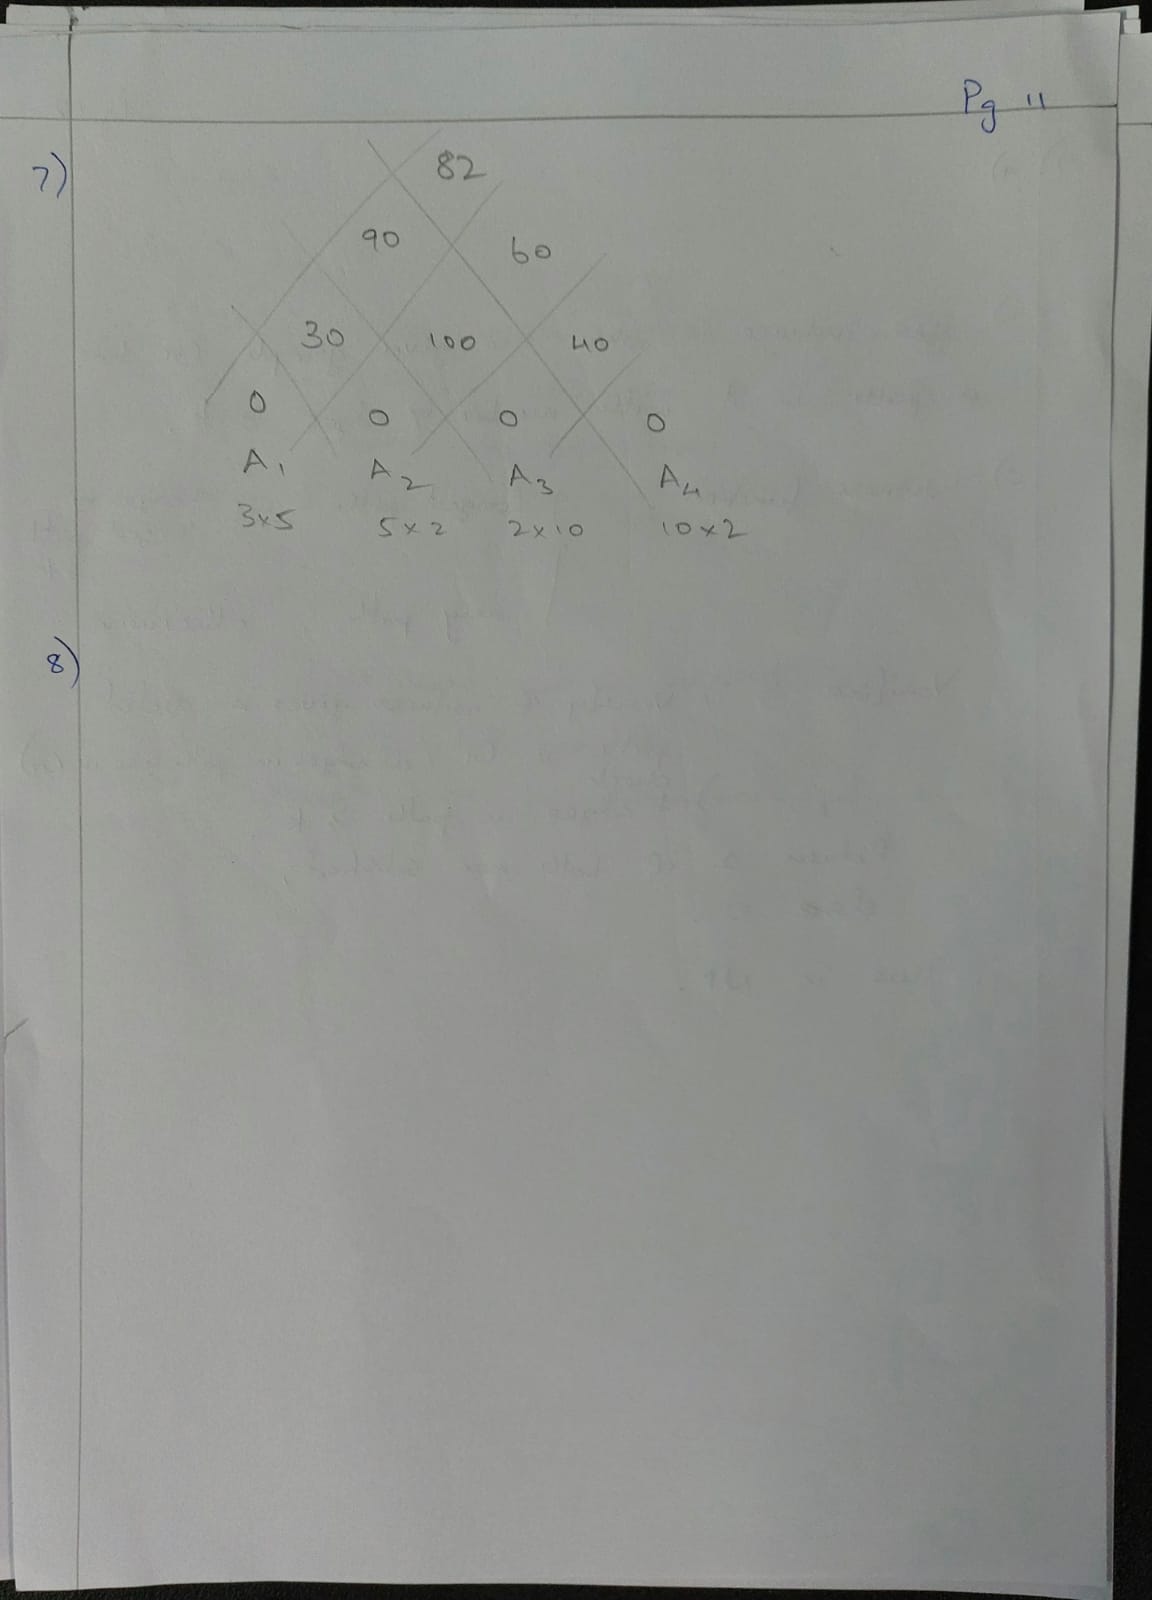 Pg 11
7)
82
90 60
30 100 40
0 0 0 0
A1 A2 A3 A4
3x5 5x2 2x10 10x2
8)